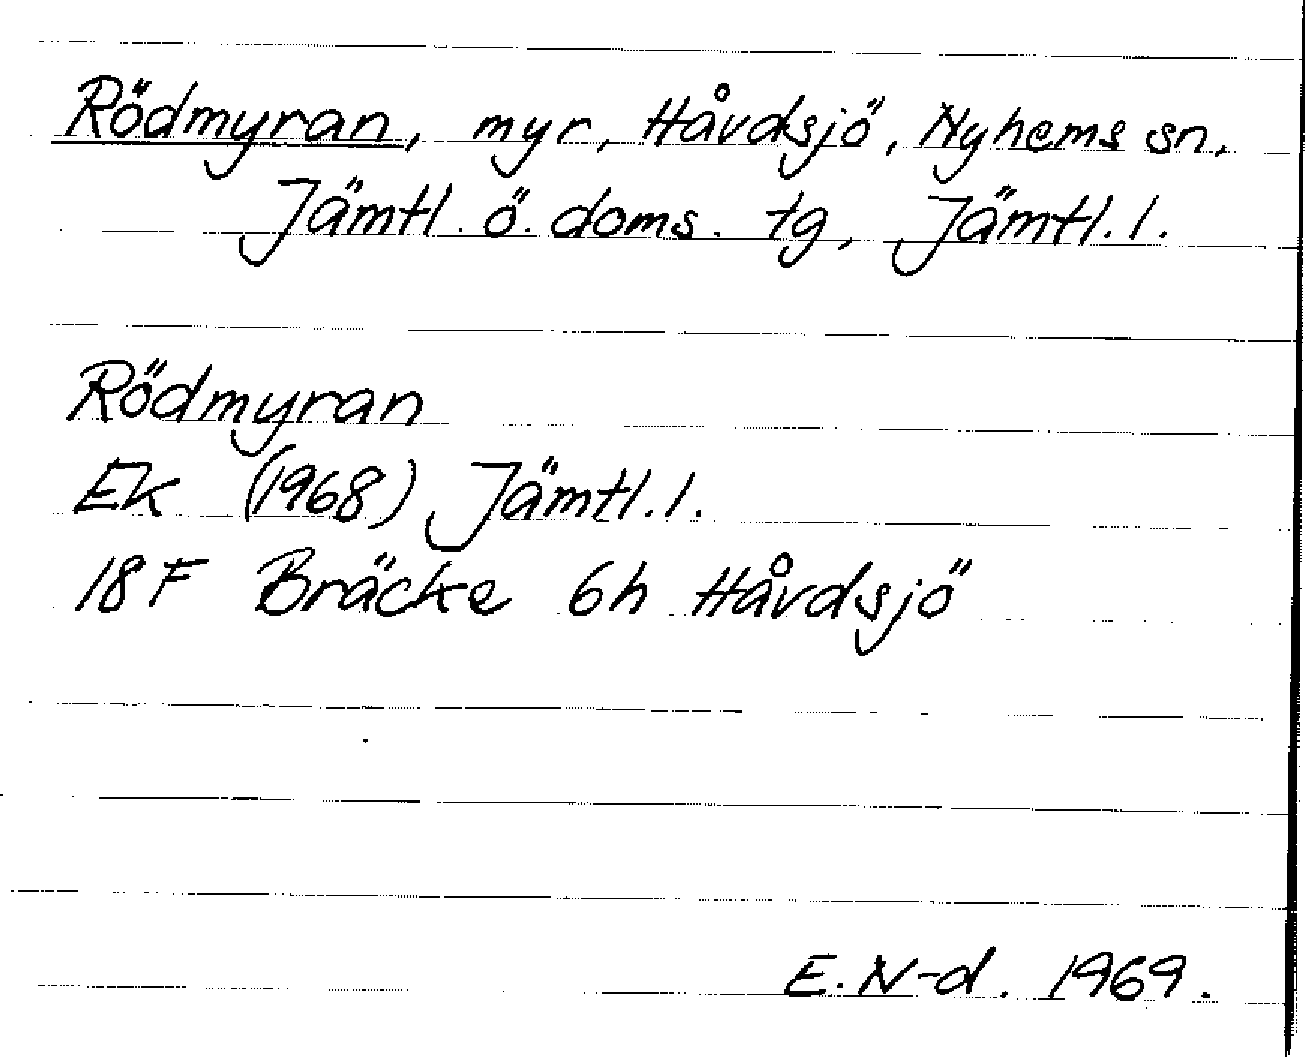 Rödmyran, myr, Håvdsjö, Nyhems sn,
Jämtl. ö. doms. tg, Jämtl. l.
Rödmyran
Ek (1968) Jämtl. l.
18 F Bräcke 6h Håvdsjö
E. N-d. 1969.